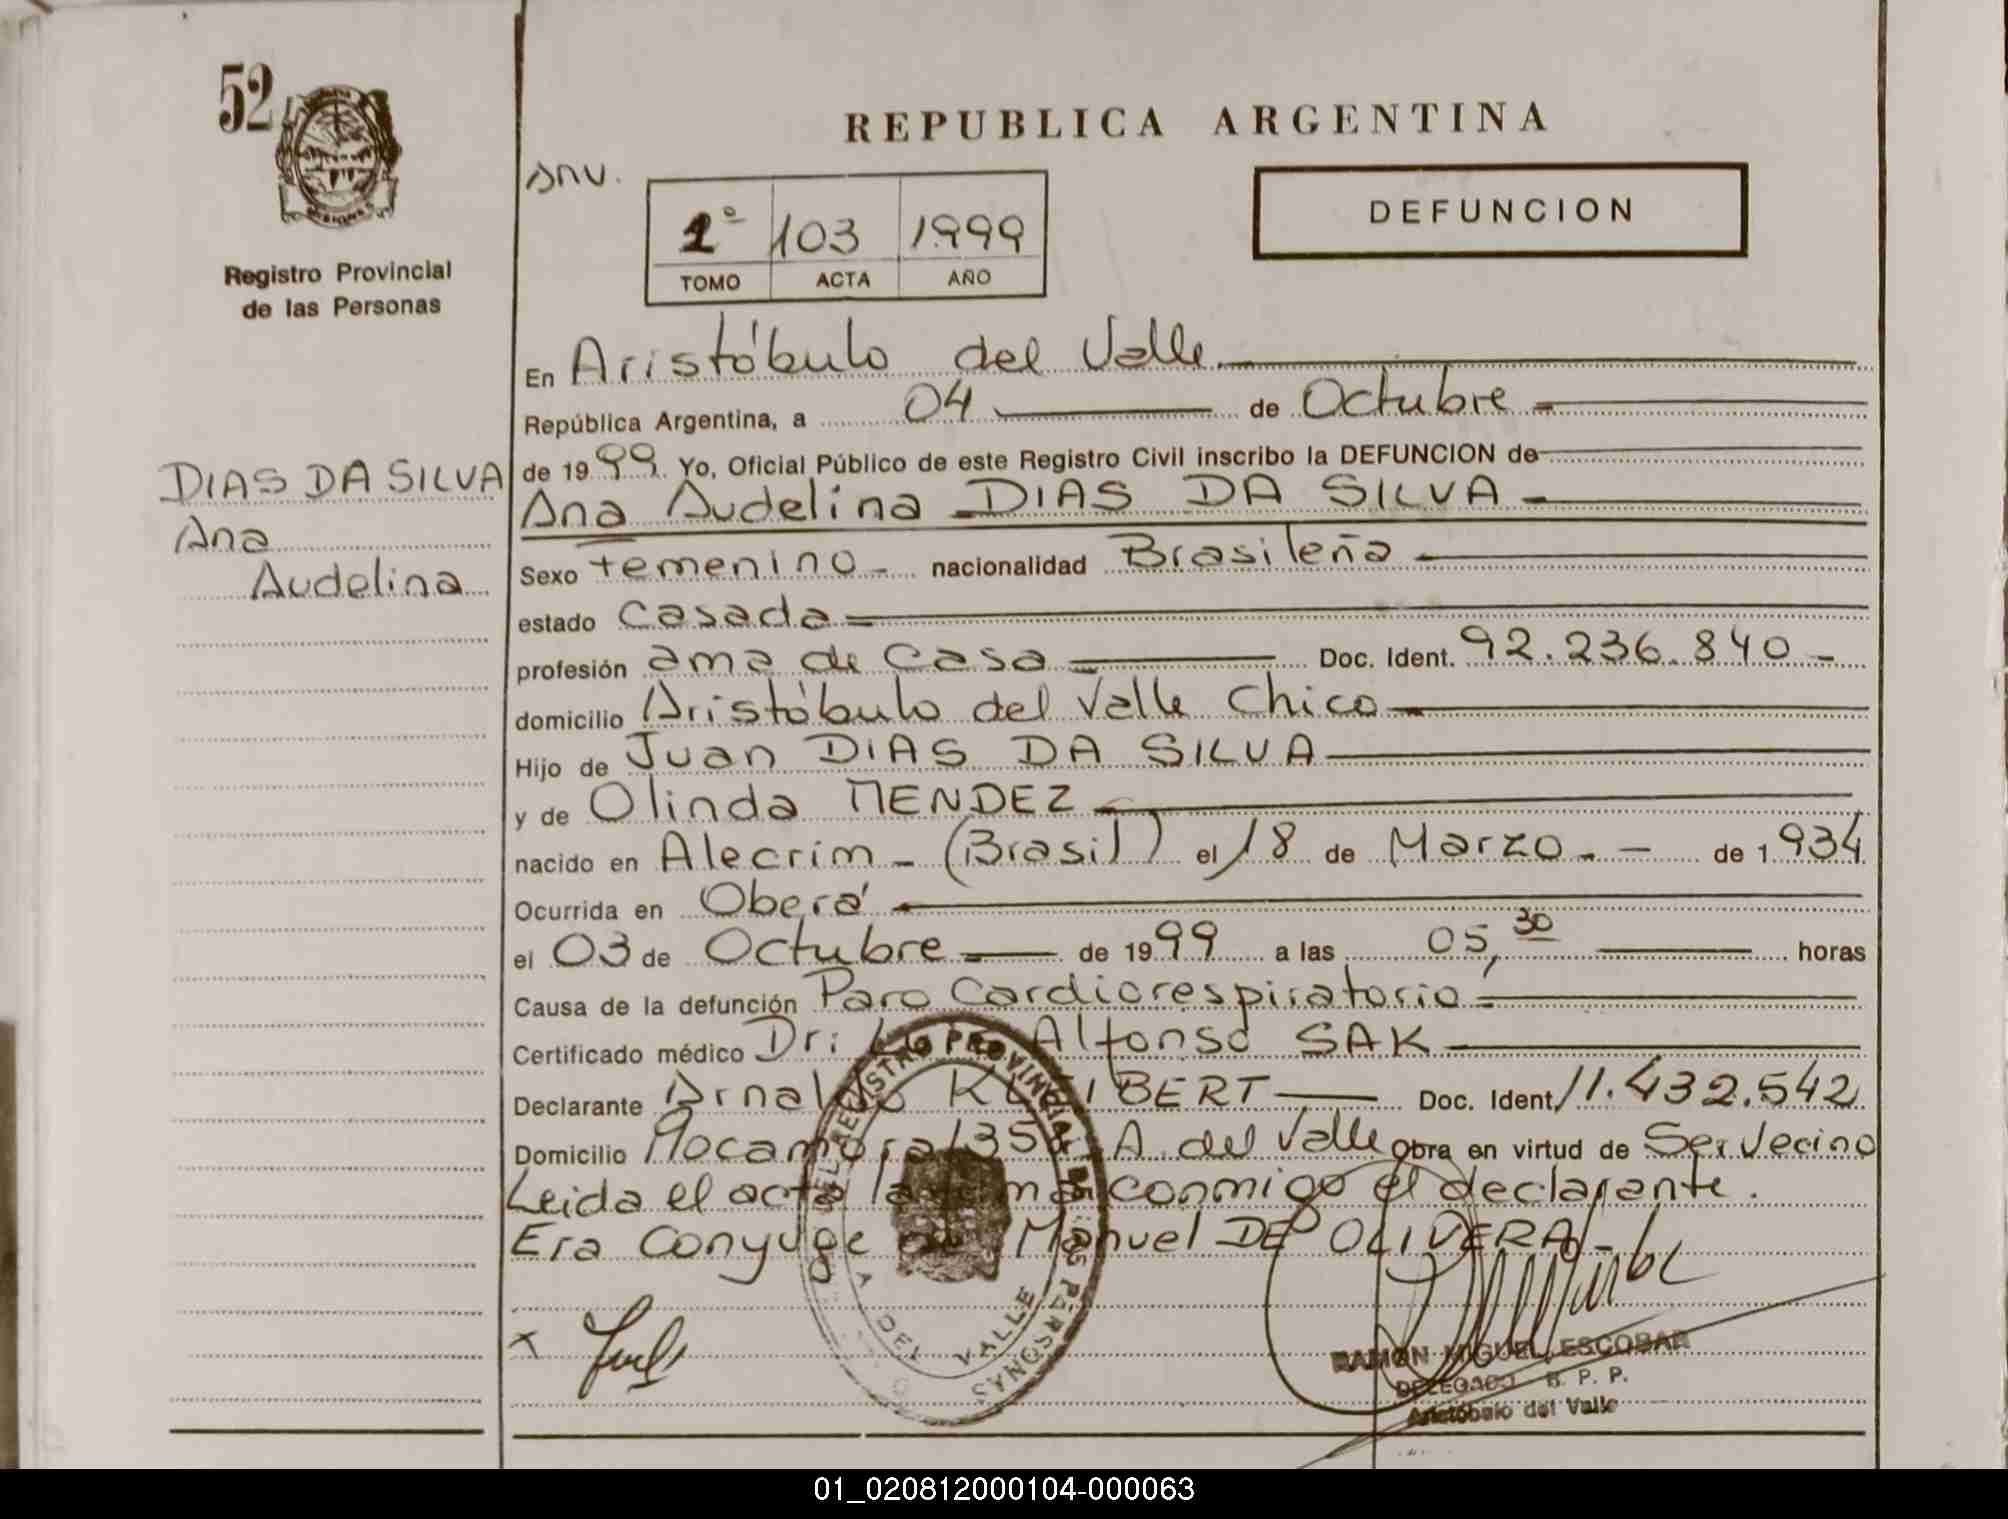 52
REPUBLICA ARGENTINA
DEFUNCION
1º 103 1999
TOMO ACTA AÑO
Registro Provincial
de las Personas
DIAS DA SILVA
Ana
Audelina
En Aristóbulo del Valle
República Argentina, a 04 de Octubre
de 1999. Yo, Oficial Público de este Registro Civil inscribo la DEFUNCION de
Ana Audelina DIAS DA SILVA
Sexo femenino nacionalidad Brasileña
estado casada
profesión ama de casa Doc. Ident. 92.236.840
domicilio Aristóbulo del Valle Chico
Hijo de Juan DIAS DA SILVA
y de Olinda MENDEZ
nacido en Alecrim - (Brasil) el 18 de Marzo de 1.934
Ocurrida en Oberá
el 03 de Octubre de 1999 a las 05,30 horas
Causa de la defunción Paro Cardiorespiratorio
Certificado médico Dr: Alfonso SAK
Declarante Arnaldo Doc. Ident. 11.432.542
Domicilio A. del Valle Obra en virtud de Ser Vecino
Leida el acta la conmigo el declarante.
Era Conyuge Manuel DE OLIVERA
REGISTRO PROVINCIAL DE LAS PERSONAS
DEL VALLE
RAMON MIGUEL ESCOBAR
DELEGADO R. P. P.
Aristóbulo del Valle
01_020812000104-000063